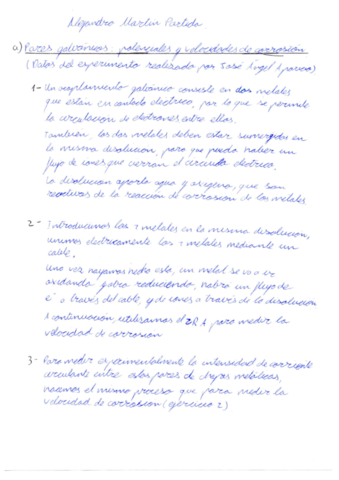 Alejandro Martín Partida
a) Pares galvánicos: potenciales y velocidades de corrosión
(Datos del experimento realizado por José Ángel Aparicio)
1- Un acoplamiento galvánico consiste en dos metales
que están en contacto eléctrico, por lo que se permite
la circulación de electrones entre ellos.
También, los dos metales deben estar sumergidos en
la misma disolución, para que pueda haber un
flujo de iones que cierran el circuito eléctrico.
La disolución aporta agua y oxígeno, que son
reactivos de la reacción de corrosión de los metales
2- Introducimos los 2 metales en la misma disolución,
unimos eléctricamente los 2 metales mediante un
cable.
Una vez hayamos hecho esto, un metal se va a ir
oxidando y otro reduciendo, habrá un flujo de
e⁻ a través del cable, y de iones a través de la disolución
A continuación, utilizamos el ZRA para medir la
velocidad de corrosión
3- Para medir experimentalmente la intensidad de corriente
circulante entre estos pares de chapas metálicas,
hacemos el mismo proceso que para medir la
velocidad de corrosión (ejercicio 2)